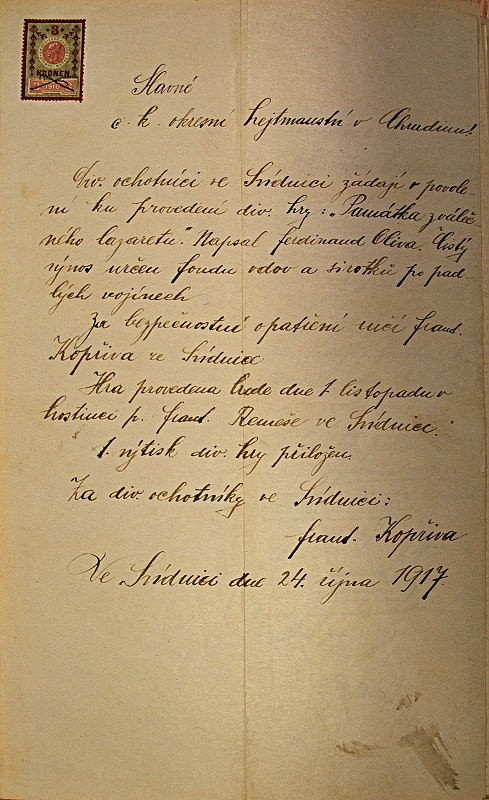 3
KRONEN
1910
Slavné
c. k. okresní hejtmanství v Chrudimi!
Div. ochotníci ve Svídnici žádají o povole-
ní ku provedení div. hry: „Památka z váleč-
ného lazaretu". Napsal Ferdinand Oliva. Čistý
výnos určen fondu vdov a sirotků po pad-
lých vojínech
Za bezpečnostní opatření ručí Frant.
Kopřiva ze Svídnice
Hra provedena bude dne 1. listopadu v
hostinci p. Frant. Remeše ve Svídnici.
1. výtisk div. hry přiložen.
Za div. ochotníky ve Svídnici:
Frant. Kopřiva
Ve Svídnici dne 24. října 1917.